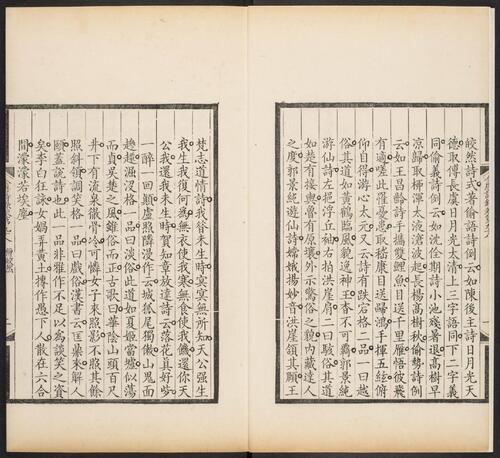 皎然詩式著偷語詩例云如陳後主詩日月光天
德取傅長虞日月光太清上三字語同下二字義
同偷義詩例云如沈佺期詩小池殘暑退高樹早
涼歸取柳渾太液滄波起長楊高樹秋偷勢詩例
云如王昌齡詩手攜雙鯉魚目送千里雁悟彼飛
有適嗟此罹憂患取嵇康目送歸鴻手揮五絃俯
仰自得游心太元又云詩有跌宕格二品一曰越
俗其道如黃鶴臨風貌逸神王杳不可羈郭景純
游仙詩左挹浮丘袖右拍洪崖肩二曰駭俗其道
如楚有接輿魯有原壤外示驚俗之貌內藏達人
之度郭景純遊仙詩嫦娥揚妙音洪崖領其頤王
梵志道情詩我昔未生時冥冥無所知天公強生
我生我復何為無衣使我寒無食使我饑還你天
公我還我未生時賀知章放達詩云落花真好些
一醉一回顛盧照隣漫作云城狐尾獨擨山鬼面
趂䟃沒格一品曰淡俗此道如夏姬當壚似蕩
而貞吳楚之風雖俗而正古歌曰華陰山頭百尺
井下有流泉徹骨冷可憐女子來照影不照其餘
照斜領調笑格一品曰戲俗漢書云匡鼎來解人
頤蓋說詩也此一品非雅作不足以為談笑之資
矣李白狂詠女媧弄黃土摶作愚下人散在六合
間濛濛若埃塵